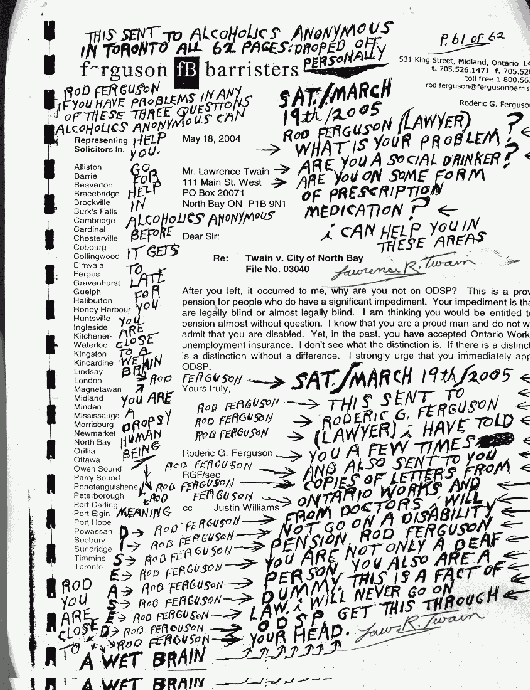 THIS SENT TO ALCOHOLICS ANONYMOUS
IN TORONTO ALL 62 PAGES: DROPED OFF
PERSONALLY
P. 61 of 62
ferguson fB barristers
531 King Street, Midland, Ontario
t. 705.526.1471 f. 705.52
toll free 1.800.56
rod.ferguson@fergusonbarris
Roderic G. Ferguson
ROD FERGUSON
IF YOU HAVE PROBLEMS IN ANY
OF THESE THREE QUESTIONS
ALCOHOLICS ANONYMOUS CAN
HELP
YOU.
GO
FOR
HELP
IN
ALCOHOLICS ANONYMOUS
BEFORE
IT GETS
TO
LATE
FOR
YOU
YOU
ARE
CLOSE
TO A
WE BRAIN
→ ROD FERGUSON
YOU ARE
A
DROPSY
HUMAN
BEING
SAT./MARCH
19th/2005
ROD FERGUSON (LAWYER)
→ WHAT IS YOUR PROBLEM?
→ ARE YOU A SOCIAL DRINKER?
→ ARE YOU ON SOME FORM
OF PRESCRIPTION
MEDICATION? ←
i CAN HELP YOU IN
THESE AREAS
Lawrence R. Twain
Representing
Solicitors In:
Alliston
Barrie
Beaverton
Bracebridge
Brockville
Burk's Falls
Cambridge
Cardinal
Chesterville
Cobourg
Collingwood
Elmvale
Fergus
Gravenhurst
Guelph
Haliburton
Honey Harbour
Huntsville
Ingleside
Kitchener-
Waterloo
Kingston
Kincardine
Lindsay
London
Magnetawan
Midland
Minden
Mississauga
Morrisburg
Newmarket
North Bay
Orillia
Ottawa
Owen Sound
Parry Sound
Penetanguishene
Peterborough
Port Carling
Port Elgin
Port Hope
Powassan
Sudbury
Sundridge
Timmins
Toronto
May 18, 2004
Mr. Lawrence Twain
111 Main St. West
PO Box 20071
North Bay ON P1B 9N1
Dear Sir:
Re: Twain v. City of North Bay
File No. 03040
After you left, it occurred to me, why are you not on ODSP? This is a prov
pension for people who do have a significant impediment. Your impediment is tha
are legally blind or almost legally blind. I am thinking you would be entitled to
pension almost without question. I know that you are a proud man and do not w
admit that you are disabled. Yet, in the past, you have accepted Ontario Work
unemployment insurance. I don't see what the distinction is. If there is a distinct
is a distinction without a difference. I strongly urge that you immediately app
ODSP.
Yours truly,
Roderic G. Ferguson
RGF/sec
cc Justin Williams
→ SAT./MARCH 19th/2005 ←
→ THIS SENT TO
→ RODERIC G. FERGUSON
→ (LAWYER) i HAVE TOLD
→ YOU A FEW TIMES
→ AND ALSO SENT TO YOU
→ COPIES OF LETTERS FROM
→ ONTARIO WORKS AND
→ FROM DOCTORS i WILL
→ NOT GO ON A DISABILITY
→ PENSION, ROD FERGUSON
→ YOU ARE NOT ONLY A DEAF
→ PERSON, YOU ALSO ARE A
→ DUMMY THIS IS A FACT OF
→ LAW. i WILL NEVER GO ON
→ ODSP GET THIS THROUGH
→ YOUR HEAD.
Law. R. Twain
ROD FERGUSON →
ROD FERGUSON →
ROD FERGUSON →
ROD FERGUSON →
ROD FERGUSON →
ROD FERGUSON →
MEANING
D → ROD FERGUSON →
I → ROD FERGUSON →
S → ROD FERGUSON →
E → ROD FERGUSON →
A → ROD FERGUSON →
S → ROD FERGUSON →
E → ROD FERGUSON →
D → ROD FERGUSON →
→ ROD FERGUSON →
ROD
YOU
ARE
CLOSE
TO
A WET BRAIN
A WET BRAIN